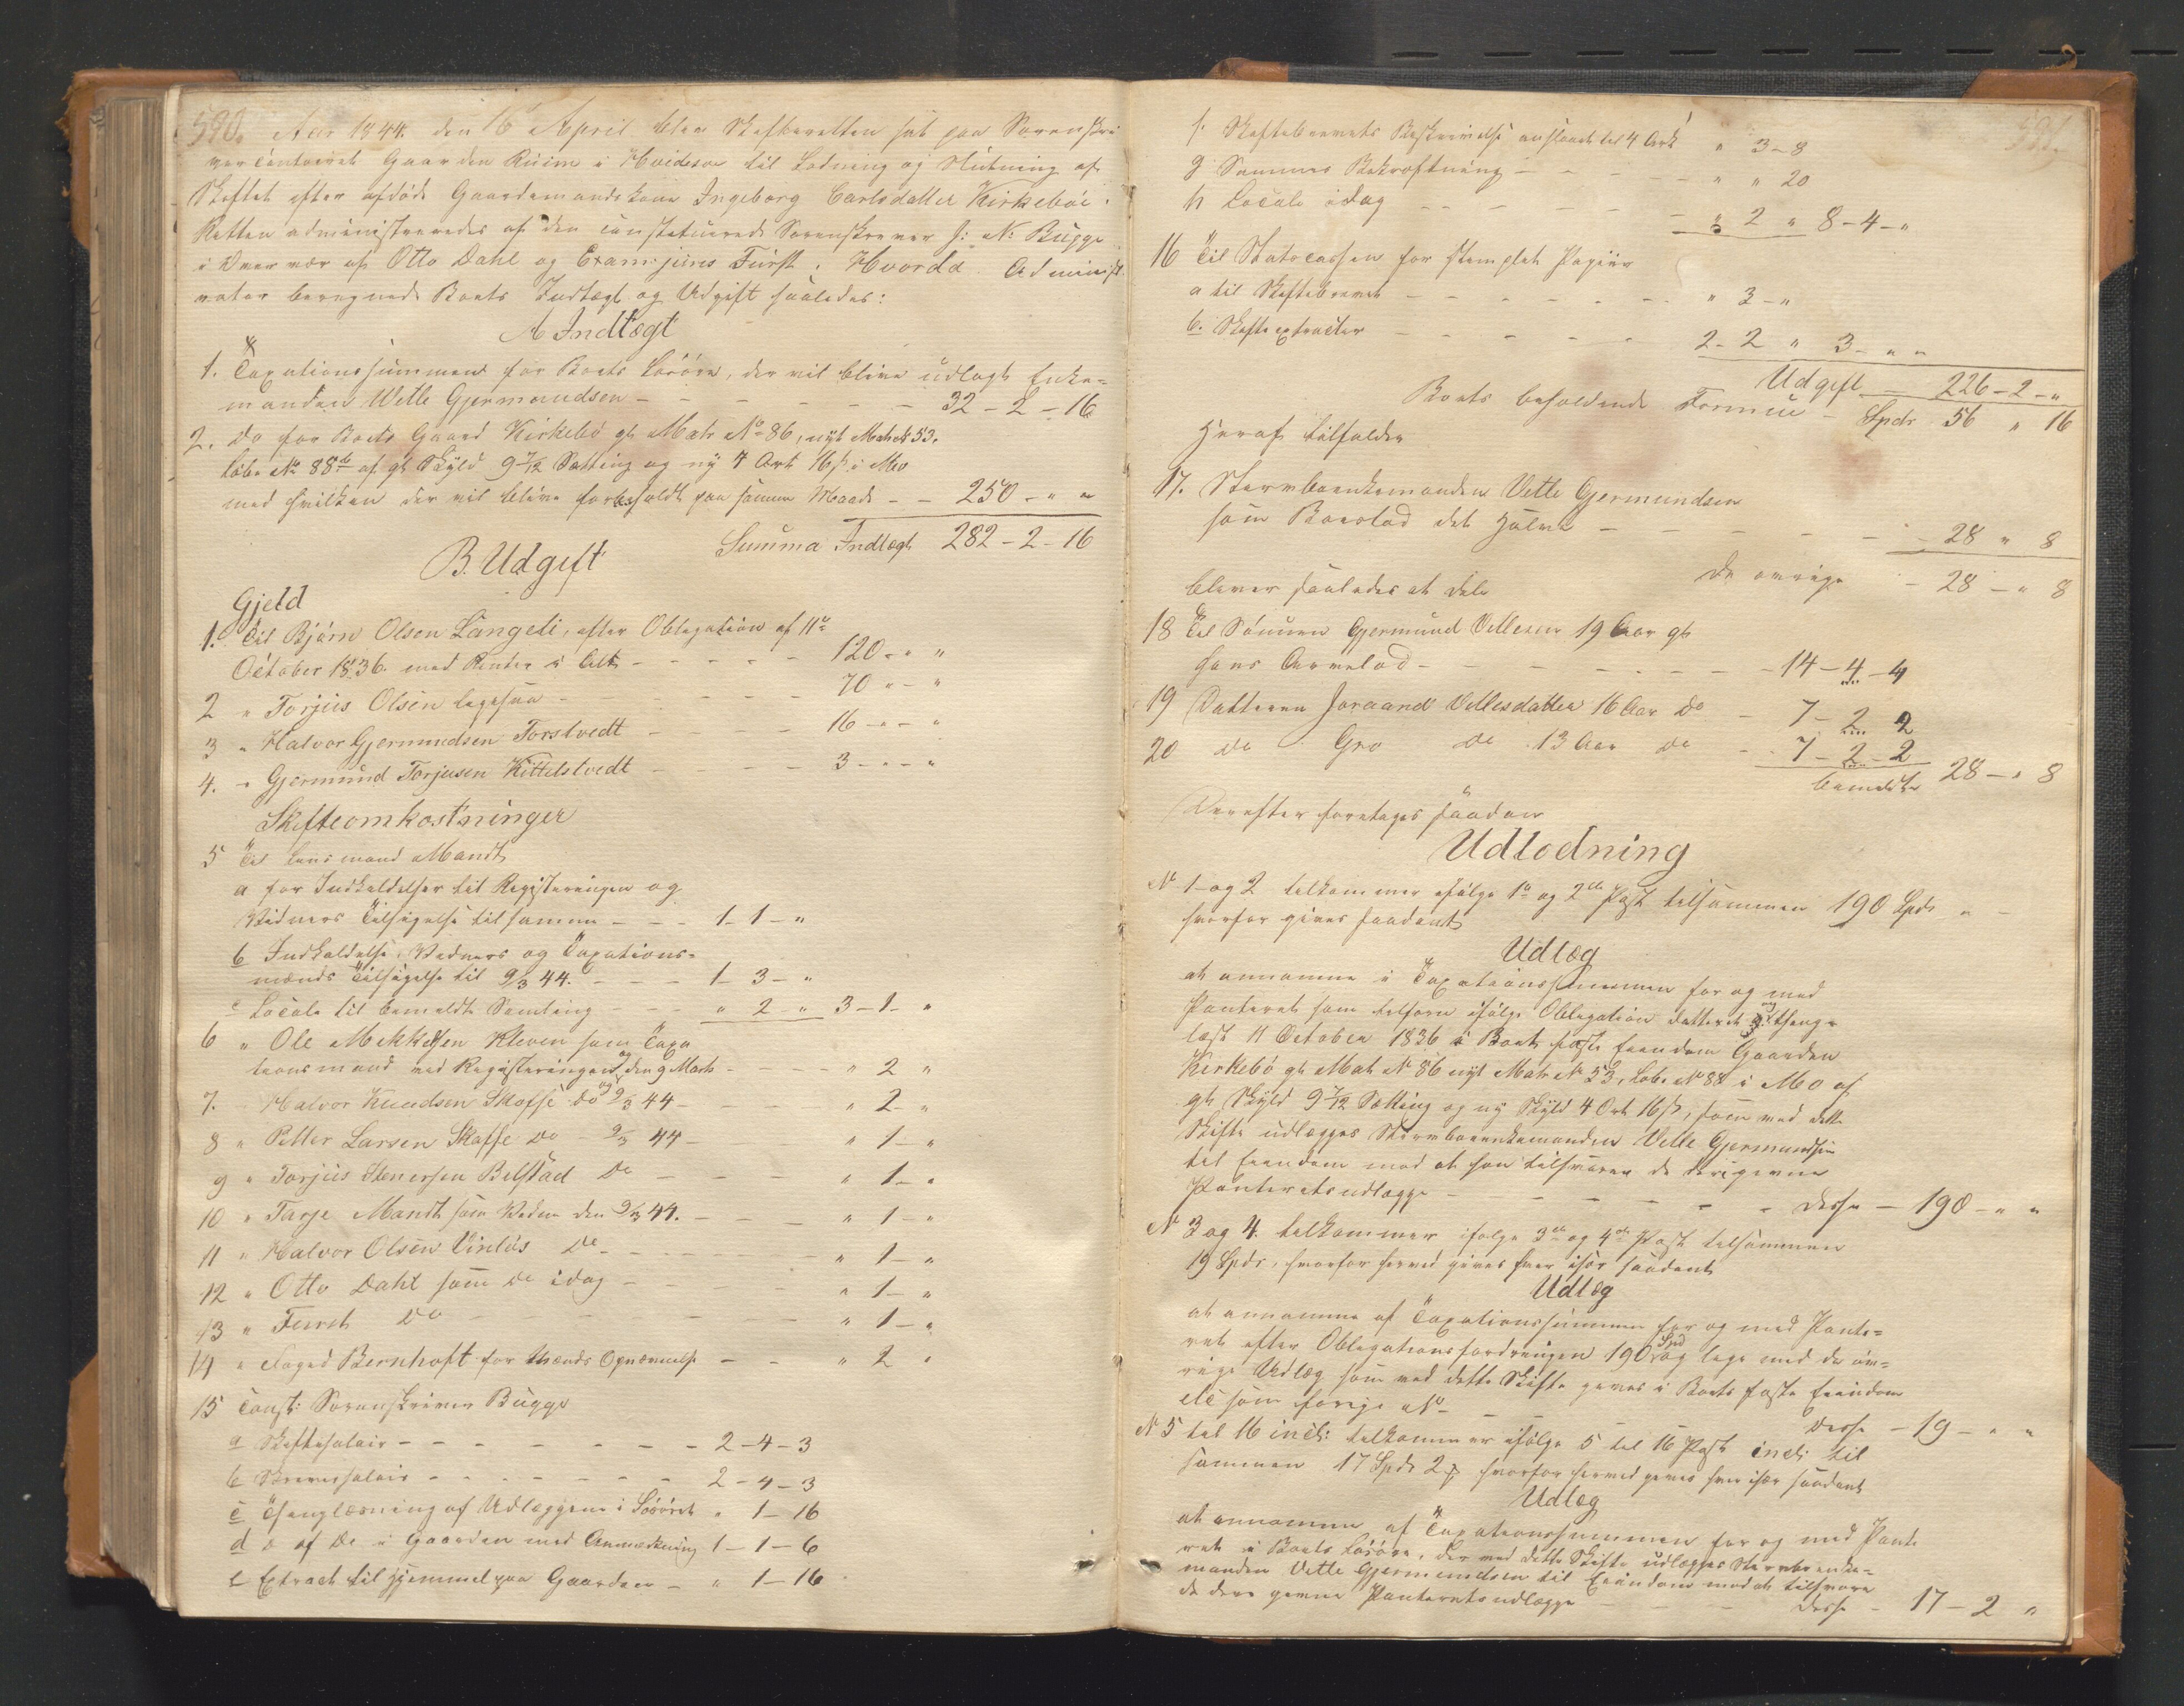 590.
Aar 1844 den 16 April blev Skifteretten sat paa Sorenskri
vercontoiret Gaarden Ruim i Hvideseø til Lodning og Slutning af
Skiftet efter afdøde Gaardemandskone Ingeborg Carlsdatter Kirkebøe.
Retten administreredes af den constituerede Sorenskriver J: N: Bugge
i Overvær af Otto Dahl og Exam: juris Fürst. Hvorda Administ
rator beregnede Boets Indtægt og Udgift saaledes:
A Indtægt
1. Taxationssummen for Boets Løsøre, der vil blive udlagt Enke=
manden Vetle Gjermundsen - - - - - - 32 - 2 - 16
2. Do for Boets Gaard Kirkebø gl Matr No 86, nyt Matr No 53.
Løbe No 88b af gl Skyld 9 7/12 Sætting og ny 4 Ort 16 ß i Mo
med hvilken der vil blive forholdt paa samme Maade - - 250 - " "
Summa Indtægt 282 - 2 - 16
B. Udgift
Gjeld
1. Til Bjørn Olsen Langeli, efter Obligation af 11te
October 1836. med Renter i Alt - - - - - 120 - " "
2 " Torjus Olsen ligesaa - - - - - - 70 " - "
3 " Halvor Gjermundsen Torstvedt - - - - 16 - " - "
4. " Gjermund Torjusen Kittelstvedt - - - - 3 - " - "
Skifteomkostninger
5 Til Lensmand Mandt
a for Indkaldelser til Registeringen og
Vidners Tilsigelse tilsammen - - - 1 - 1 - "
b Indkaldelse, Vidners og Taxations=
mænds Tilsigelse til 9/3 44. - - - 1 - 3 - "
c Locale til bemeldte Samling - - - " 2 " 3 - 1 - "
6 " Ole Mikkelsen Kleven som Taxa
tionsmand ved Registeringen og den 9 Marts - - - - " 2 "
7. Halvor Knudsen Skafse do og 9/3 44 - - - " 2 - "
8 " Petter Larsen Skafse do - 9/3 44 - " 1 - "
9 " Torjus Stenersen Belstad Do - - - " 1 - "
10 " Tarje Mandt som Vidne den 9/3 44. - - - " 1 - "
11 " Halvor Olsen Do - - - - - " 1 - "
12 " Otto Dahl som Do idag - - - - " 1 - "
13 " Fürst Do - - - - - - " 1 - "
14 " Foged Bernhoft for Mænds Opnævnelse - - " 2 "
15 Const: Sorenskriver Bugge
a Skiftesalair - - - - - - - - 2 - 4 - 3
b Skriversalair - - - - - - - 2 - 4 - 3
c Thinglæsning af Udlæggene i Løsøret " 1 - 16
d " af Do i Gaarden med Anmærkning 1 - 1 - 6
e Extract til Hjemmel paa Gaarden - " 1 - 16
591.
f. Skiftebrevets Beskrivelse anslaaet til 4 Ark " 3 - 8
g Sammes Bekræftning - - - - - " " 20
h Locale idag - - - - - - " 2 " 8 - 4 - "
16 Til Statscassen for stemplet Papiir
a til Skiftebrevet - - - - - - " 3 - "
b. Skifteextracter - - - - - 2 - 2 " 3 - " "
Udgift - 226 - 2 - "
Boets beholdende Formue - Spdr 56 " 16
Heraf tilfalder
17. Stervboenkemanden Vetle Gjermundsen
som Boeslod det Halve - - - - - 28 " 8
De øvrige - 28 - " 8
bliver saaledes at dele
18 Til Sønnen Gjermund Vetlesen 19 Aar gl
hans Arvelod - - - - - - - 14 - 4 - 4
19 Datteren Joraand Vetlesdatter 16 Aar Do - 7 - 2 2
20 do Gro do 13 Aar do - - 7 - 2 - 2
bemeldte 28 - " 8
Derefter foretages saadan
Udlodning
No 1 og 2 tilkommer ifølge 1te og 2den Post tilsammen 190 Spdr " -
hvorfor gives saadant
Udlæg
at annamme i Taxationssummen for og med
Panteret som tilforn ifølge Obligation datteret og thinge
læst 11 October 1836 i Boets faste Eiendom Gaarden
Kirkebø gl Mat No 86 nyt Matr No 53, Løbe No 88 i Mo af
gl Skyld 9 7/12 Sætting og ny Skyld 4 Ort 16 ß, som ved dette
Skifte udlægges Stervboenkemanden Vetle Gjermundsen
til Eiendom mod at han tilsvarer de derigivne
Panteretsudlægge - - - - - - Disse - 190 - " "
No 3 og 4. tilkommer ifølge 3die og 4de Post tilsammen
19 Spdr, hvorfor herved gives hver især saadant
Udlæg
at annamme af Taxationssummen for og med Pante=
ret efter Obligationsfordringen 190 Spd og lige med de øv=
rige Udlæg som ved dette Skifte gives i Boets faste Eiendom
etc som forrige No - - - - - - Disse - 19 - " "
No 5 til 16 incl: tilkommer ifølge 5 til 16 Post incl: til
sammen 17 Spdr 2 hvorfor herved gives hver især saadant
Udlæg
at annamme af Taxationssummen for og med Pante
ret i Boets Løsøre, der ved dette Skifte udlægges Stervboenke=
manden Vetle Gjermundsen til Eiendom mod at tilsvare
de deri givne Panteretsudlægge - - - - Disse - 17 - 2 "